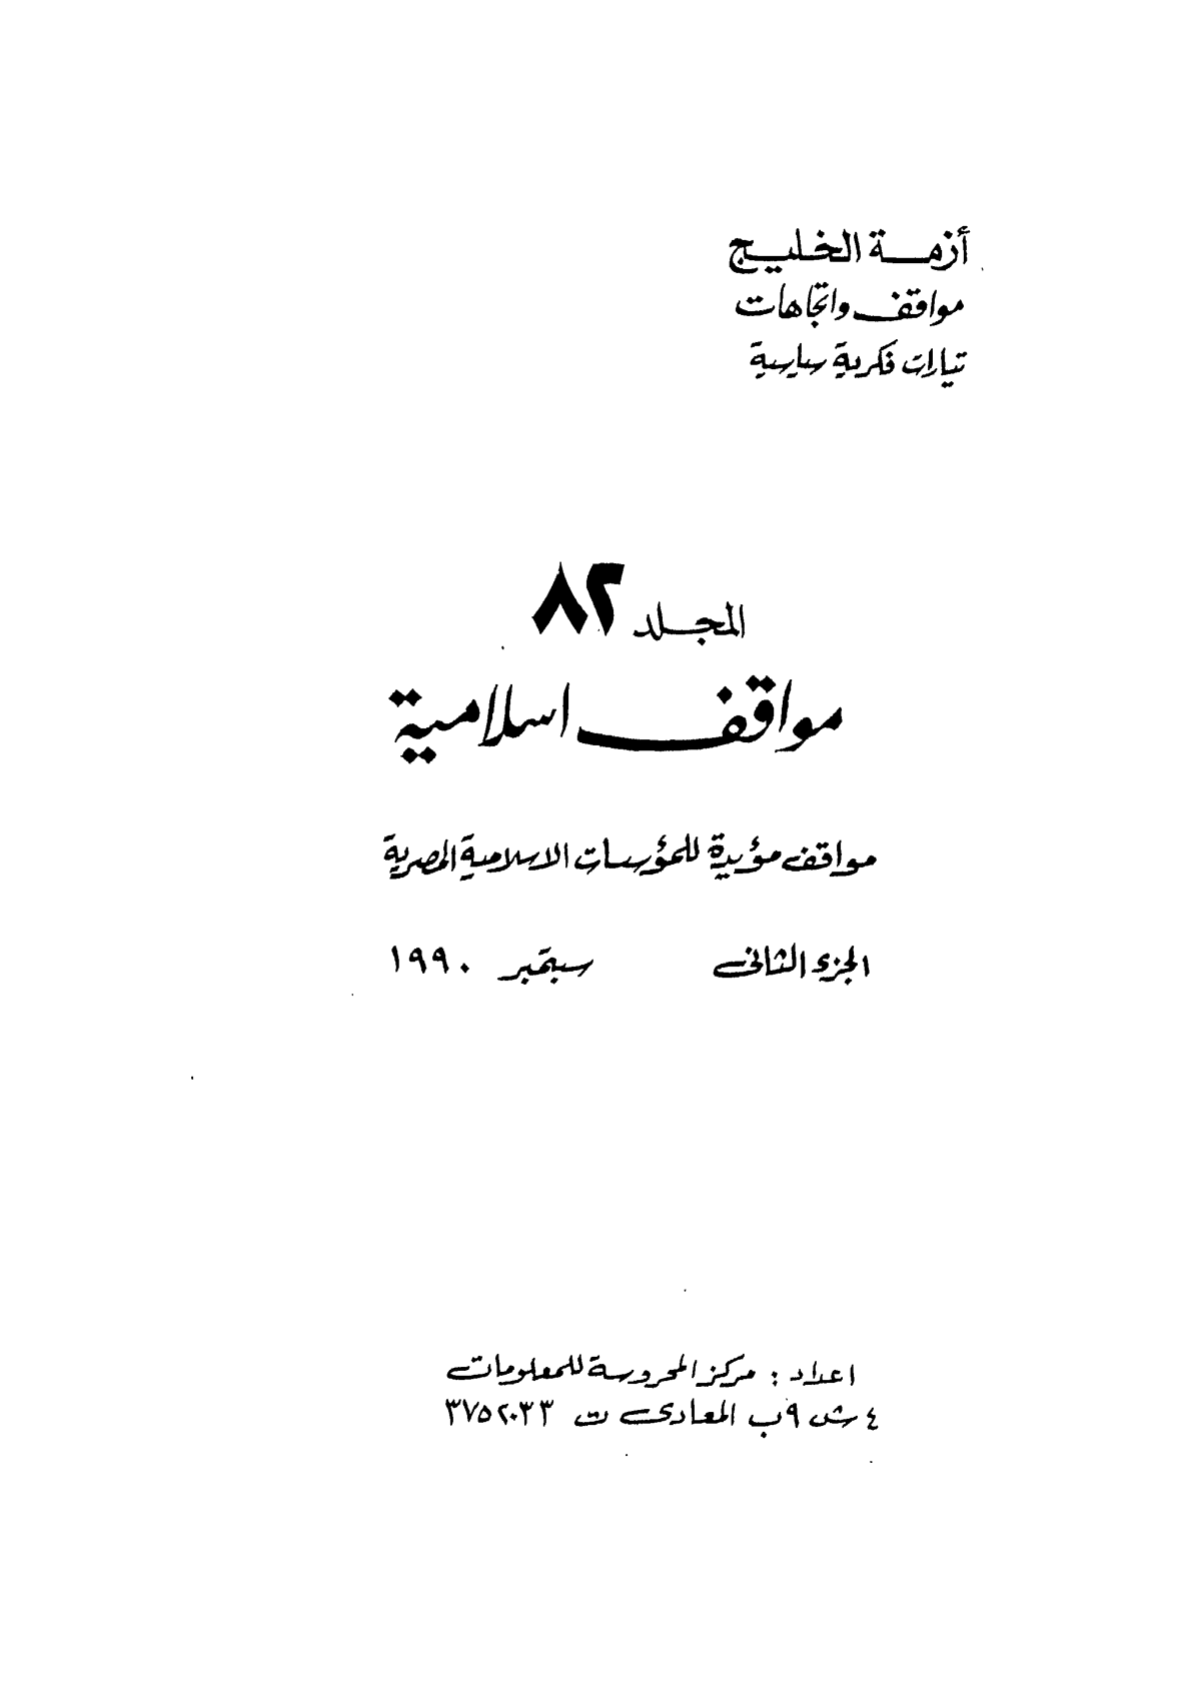 أزمة الخليج
مواقف واتجاهات
تيارات فكرية سياسية
المجلد ٨٢
مواقف اسلامية
مواقف مؤيدة للمؤسسات الاسلامية المصرية
الجزء الثانى سبتمبر ١٩٩٠
اعداد : مركز المحروسة للمعلومات
٤ ش ٩ب المعادى ت ٣٧٥٢٠٣٣